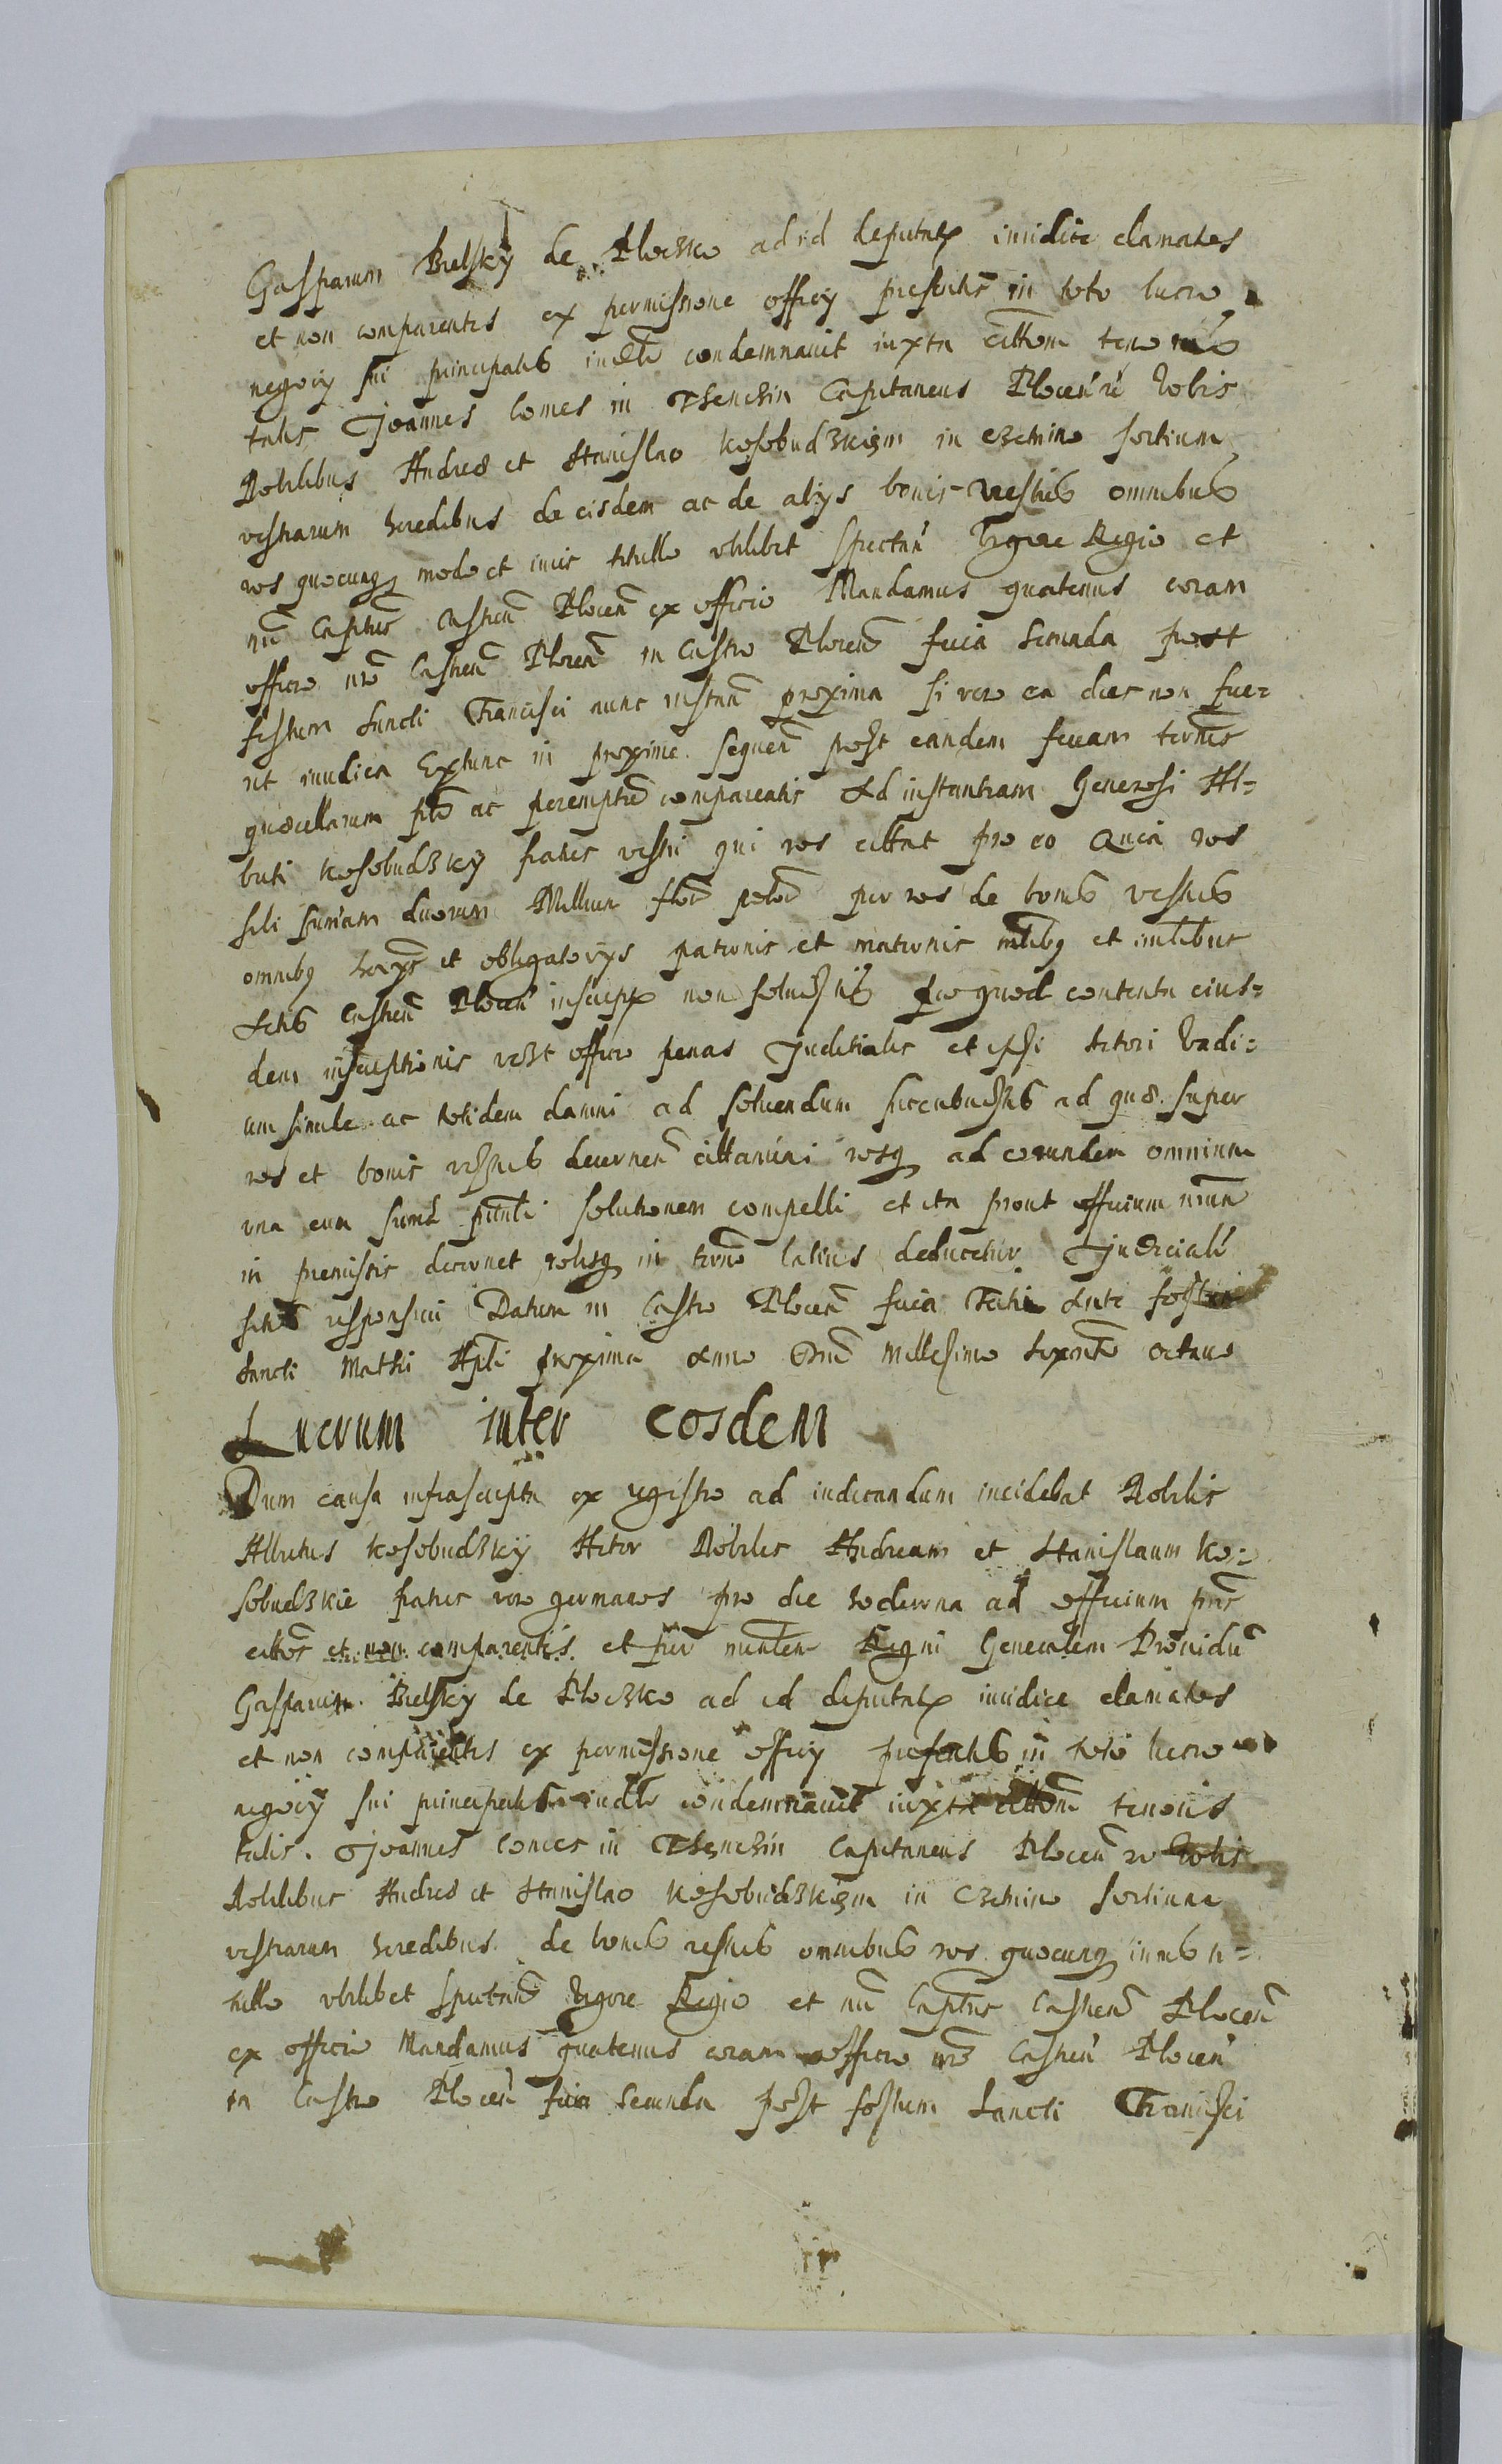 Gasparum Bielsky de Ploczko ad id deputatū iuridice clamatos
et non comparentes ex permissione officij presentis in toto lucro
negocij sui principalis iudr̄ condemnauit iuxta cittōm tenoris
talis Joannes Comes in Thenchin Capitaneus Plocen̄ Vobis
Nobilibus Andreæ et Stanislao Kosobudzkiem in Czchino sortium
vestrarum heredibus de eisdem ac de alijs bonis vestris omnibus
vos quocunq modo et iuris titullo vbilibet spectan̄ Vigore Regio et
nrō Capitlis Castren̄ Plocen̄ ex officio Mandamus quatenus coram
officio nrō Castren̄ Plocen̄ in Castro Plocen̄ feria Secunda post
festum Sancti Francisci nunc instan̄ proxima si vero ea dies non fue=
rit iuridica Extunc in proxime sequen̄ post eandem feriam terminis
quærellarum ptē ac peremptē compareatis Ad instantiam Generosi Al=
berti Kosobudzky fratris vestri qui vos cittat pro eo Quia vos
sibi Sumam duorum Millium flor̄ polon̄ per vos de bonis vestris
omnibq et obligatorys paternis et maternis mobilibq et imlibus
Actis Castren̄ Plocen̄ inscript non soluistis pro quod contenta eius=
dem inscriptionis vest officio penas Juditiales et ipsi Actori Vadi=
um simile ac totidem damni ad soluendum succubuistis ad quæ super
vos et bonis vestris decernen̄ cittamini vosq ad eorundem omnium
vna cum suma printi solutionem compelli et ita prout officium nrūm
in premissis decernet vobisq in termino latius deducetur Judiciali
sitis responsuri Datum in Castro Plocen̄ feria Tertia Ante festum
Sancti Mathei Apli proxima Anno Dni Millesimo Sexcente octauo
Lucrum inter eosdem
Dum causa infrascripta ex registro ad iudicandum incidebat Nobilis
Albertus Kosobudzky Actor Nobiles Andream et Stanislaum Ko=
sobudzkie fratres vero germanos pro die hodierna ad officium prns
cittos et non comparentis et per ministem Regni Generalem Prouidū
Gasparum Bielsky de Ploczko ad id deputatū iuridice clamatos
et non comparentes ex permissione officij presentis in toto lucro
negocij sui principalis iudr̄ condemnauit iuxta cittōm tenoris
talis. Joannes Comes in Thenchin Capitaneus Plocen̄ Vobis
Nobilibus Andreæ et Stanislao Kosobudzkiem in Czchino sortium
vestrarum heredibus de bonis vestris omnibus vos quocunq iuris ti=
tullo vbilibet spectan̄ Vigore Regio et nrō Captlis Castren̄ Plocen̄
ex officio Mandamus quatenus coram officio nrō Castren̄ Plocen̄
in Castro Plocen̄ feria Secunda post festum Sancti Francisci